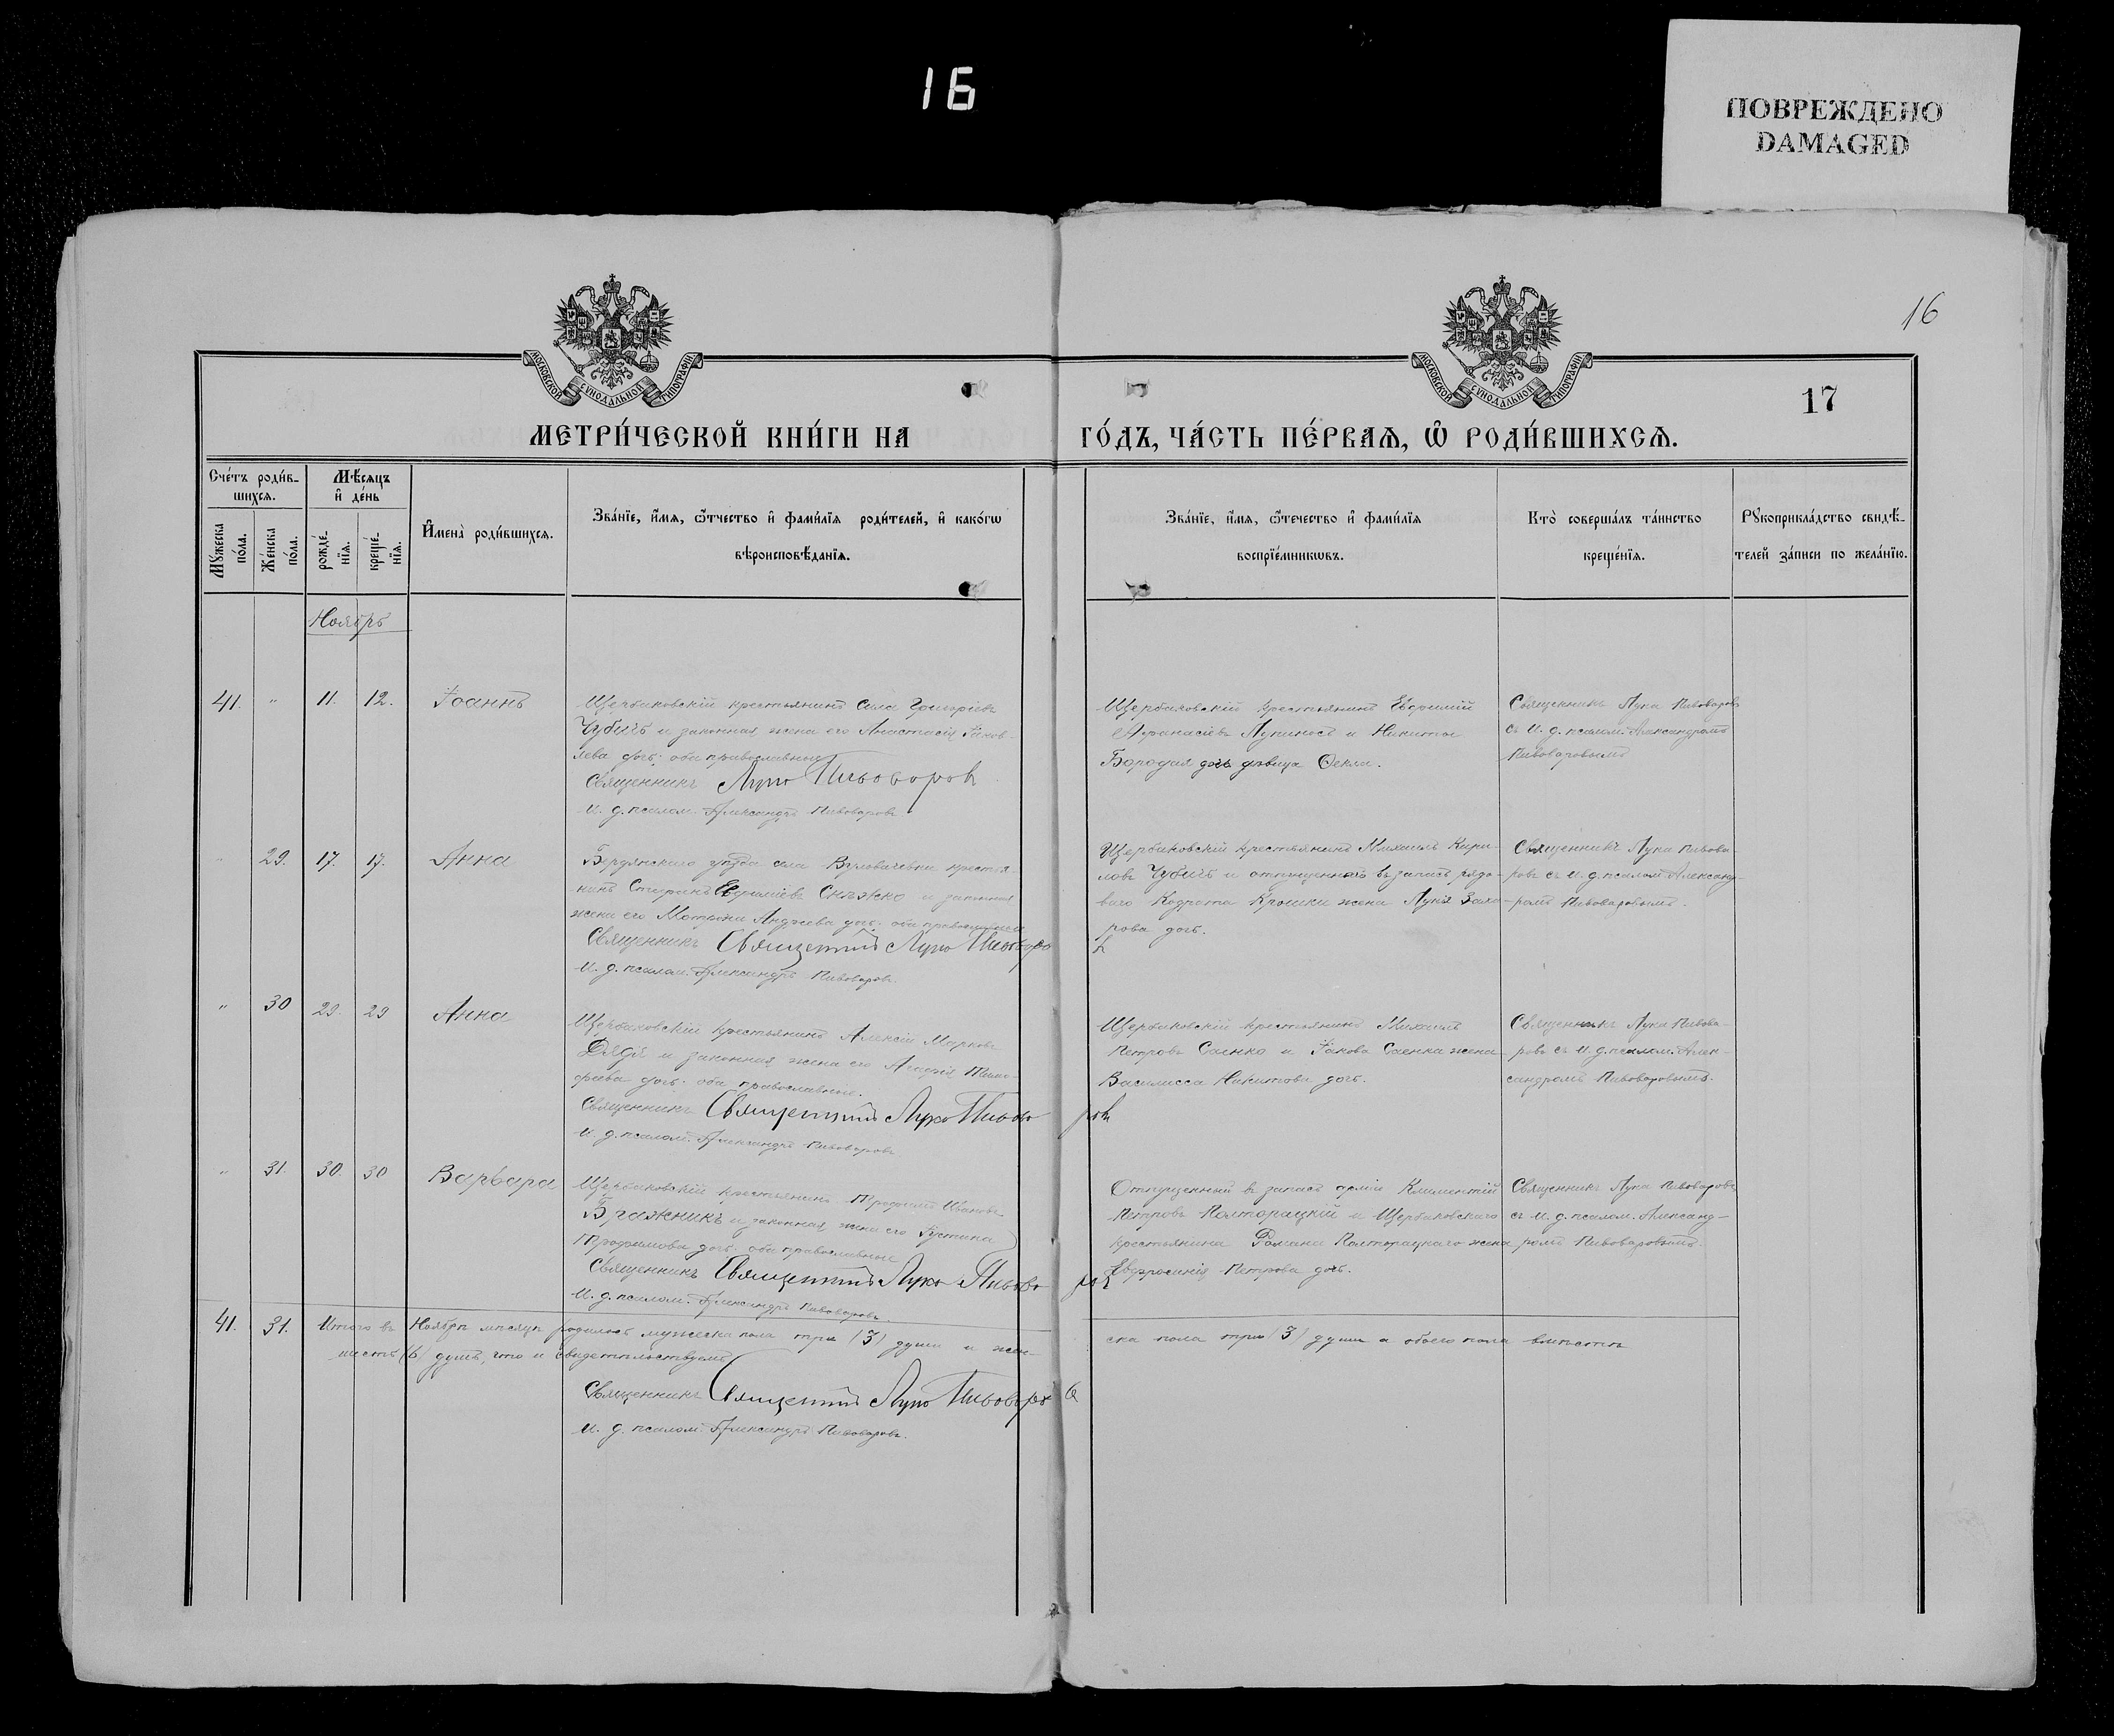 16
ПОВРЕЖДЕНО
DAMAGED
16
МОСКОВСКОЙ СѴНОДАЛЬНОЙ ТИПОГРАФІИ
МОСКОВСКОЙ СѴНОДАЛЬНОЙ ТИПОГРАФІИ
17
МЕТРИ́ЧЕСКОЙ КНИ́ГИ НА ГО́ДЪ, ЧА́СТЬ ПЕ́РВАѦ, Ѡ҆ РОДИ́ВШИХСѦ.
Сче́тъ роди́в-
шихсѧ.
Мꙋ́жеска
по́ла.
Же́нска
по́ла.
Мѣ́сѧцъ
и҆ де́нь
рожде́-
нїѧ.
креще́-
нїѧ.
И҆мена̀ роди́вшихсѧ.
Зва́нїе, и҆́мѧ, ѻ҆́тчество и҆ фами́лїѧ роди́телей, и҆ како́гѡ
вѣроисповѣ́данїѧ.
Зва́нїе, и҆́мѧ, ѻ҆́течество и҆ фами́лїѧ
воспрїе́мникѡвъ.
Кто̀ соверша́лъ та́инство
креще́нїѧ.
Рꙋкоприкла́дство свидѣ́-
телей за́писи по жела́нїю.
Ноябрь
41. " 11. 12. Іоаннъ
Щербаковскій крестьянинъ Сила Григоріевъ
Чубичъ и законная жена его Анастасія Іаков-
лева дочь; оба православные
Священникъ Лука Пивоваровъ
И. д. псалом. Александръ Пивоваровъ
Щербаковскій крестьянинъ Евфимій
Афанасіевъ Лупиносъ и Никиты
Бородая дочь девица Фекла.
Священникъ Лука Пивоваровъ
съ И. д. псалом. Александромъ
Пивоваровымъ
" 29. 17. 17. Анна
Бердянскаго уѣзда села крестья-
нинъ Евфиміевъ Снѣжко и законная
жена его Матрона Андреева дочь; оба православные
Священникъ Священникъ Лука Пивоваровъ
И. д. псалом. Александръ Пивоваровъ.
Щербаковскій крестьянинъ Михаилъ Кири-
ловъ Чубичъ и отпущеннаго въ запасъ рядо-
ваго Кодрата Крошки жена Лукія Заха-
рова дочь.
Священникъ Лука Пивова-
ровъ съ И. д. псалом. Александ-
ромъ Пивоваровымъ.
" 30 29. 29 Анна
Щербаковскій крестьянинъ Алексій Марковъ
Дядя и законная жена его Агафія Тимо-
феева дочь; оба православные.
Священникъ Священникъ Лука Пивоваровъ
И. д. псалом. Александръ Пивоваровъ
Щербаковскій крестьянинъ Михаилъ
Петровъ Саенко и Іакова Саенка жена
Василисса Никитова дочь.
Священникъ Лука Пивова-
ровъ съ И. д. псалом. Алек-
сандромъ Пивоваровымъ.
" 31. 30. 30 Варвара
Щербаковскій крестьянинъ Трофимъ Ивановъ
Бражникъ и законная жена его Іустина
Трофимова дочь; оба православные
Священникъ Священникъ Лука Пивоваровъ
И. д. псалом. Александръ Пивоваровъ.
Отпущенный въ запасъ арміи Климентій
Петровъ Полторацкій и Щербаковскаго
крестьянина Романа Полторацкаго жена
Евфросинія Петрова дочь.
Священникъ Лука Пивоваровъ
съ И. д. псалом. Александ-
ромъ Пивоваровымъ.
41. 31. Итого въ Ноябрѣ мѣсяцѣ родилось мужеска пола три (3) души и жен-
ска пола три (3) души а обоего пола вмѣстѣ
шесть (6) душъ, что и свидетельствуемъ
Священникъ Священникъ Лука Пивоваровъ
И. д. псалом. Александръ Пивоваровъ.